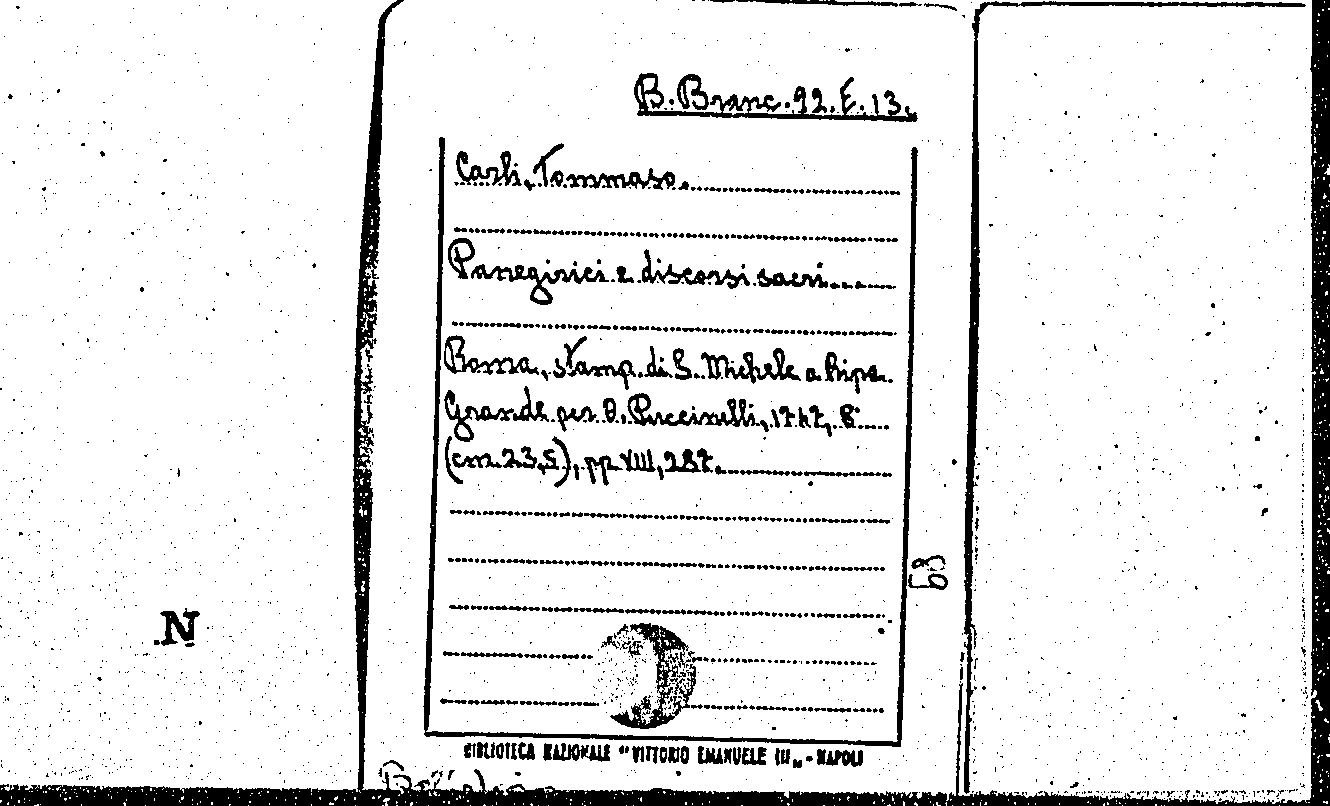 B. Branc. 92. E. 13.
Carli, Tommaso.
Panegirici e discorsi sacri...
Roma, stamp. di S. Michele a Ripa
Grande per O. Puccinelli, 1747, 8°
(cm. 23,5), pp. VIII, 287.
68
N
BIBLIOTECA NAZIONALE "VITTORIO EMANUELE III" - NAPOLI